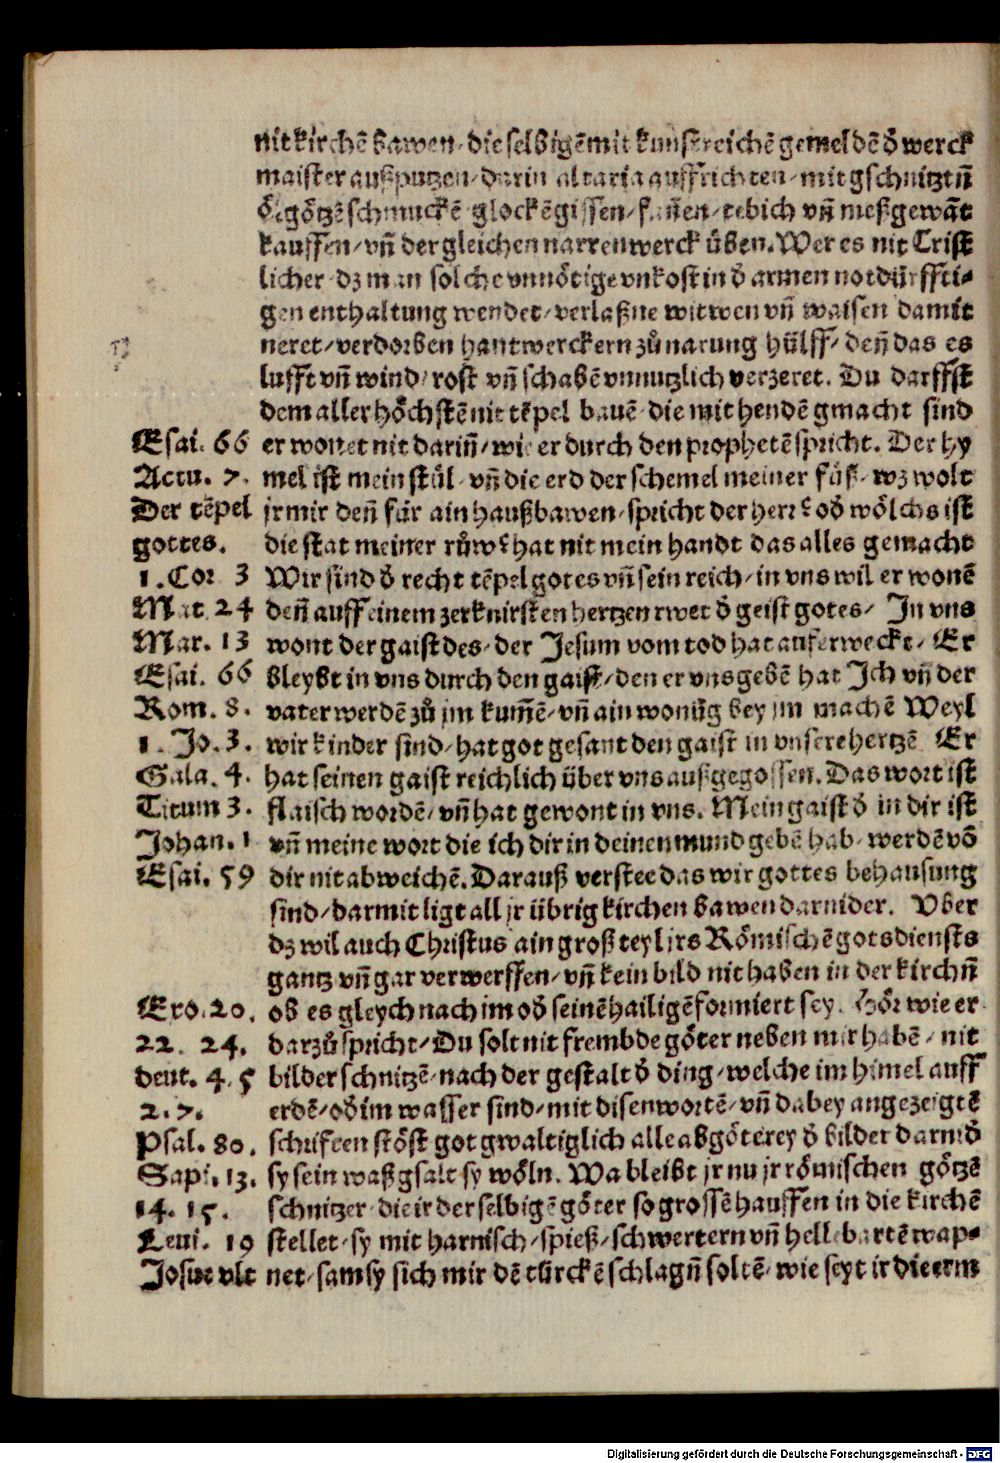 nit kirchē bawen / die selbigē mit kunstreichē gemeldē d̄ werck
maister außputzen / darin altaria auffrichten / mit gschnitztn̄
götzē schmuckē glockē giessen / fanen / tebich vn̄ meßgewāt
kauffen / vn̄ dergleichen narrenwerck üben. Wer es nit Crist
licher dz man solche vnnötige vnkost in d̄ armen notdürffti⸗
gen enthaltung wendet / verlaßne witwen vn̄ waisen damit
neret / verdorben hantwerckern zů narung hülff / den̄ das es
lufft vn̄ wind / rost vn̄ schabē vnnutzlich verzeret. Du darffst
dem allerhöchstē nit tēpel bauē die mit hendē gmacht sind
Esai. 66 er wonet nit darin̄ / wie er durch den prophetē spricht. Der hy
Actu. 7. mel ist mein stůl / vn̄ die erd der schemel meiner fůß / wz wolt
Der tēpel jr mir den̄ für ain hauß bawen / spricht der herr? od̄ wölchs ist
gottes. die stat meiner růw? hat nit mein handt das alles gemacht
1. Cor 3 Wir sind d̄ recht tēpel gotes vn̄ sein reich / in vns wil er wonē
Mat. 24 den̄ auff einem zerknirsten hertzen rwet d̄ geist gotes / In vns
Mar. 13 wont der gaist des / der Jesum vom tod hat auferweckt / Er
Esai. 66 bleybt in vns durch den gaist / den er vns gebē hat Ich vn̄ der
Rom. 8. vater werdē zů jm kum̄ē / vn̄ ain wonūg bey jm machē Weyl
1. Jo. 3. wir kinder sind / hat got gesant den gaist in vnsere hertzē Er
Gala. 4. hat seinen gaist reichlich über vns außgegossen. Das wort ist
Titum 3. flaisch wordē / vn̄ hat gewont in vns. Mein gaist d̄ in dir ist
Johan. 1 vn̄ meine wort die ich dir in deinen mund gebē hab / werdē vō
Esai. 59 dir nit abweichē. Darauß verstee das wir gottes behausung
sind / darmit ligt all jr übrig kirchen bawen darnider. Vber
dz wil auch Christus ain groß teyl jrs Römischē gotsdiensts
gantz vn̄ gar verwerffen / vn̄ kein bild nit haben in der kirchn̄
Exo. 20. ob es gleych nach im od̄ seinē hailigē formiert sey. Hör wie er
22. 24. darzů spricht / Du solt nit frembde göter neben mir habē / nit
deut. 4. 5 bilder schnitzē / nach der gestalt d̄ ding / welche im himel auff
2. 7. erdē / od̄ im wasser sind / mit disen wortē / vn̄ dabey angezeigtē
Psal. 80. schriften stöst got gwaltiglich alle abgöterey d̄ bilder darnid̄
Sapi. 13. sy sein waß gsalt sy wöln. Wa bleibt jr nu jr römischen götzē
14. 15. schnitzer / die ir der selbigē göter so grossē hauffen in die kirchē
Leui. 19 stellet / sy mit harnisch / spieß / schwertern vn̄ hellebartē wap⸗
Josue vlt net / sam sy sich mir dē türckē schlagn̄ soltē / wie seyt ir die erm
Digitalisierung gefördert durch die Deutsche Forschungsgemeinschaft - DFG